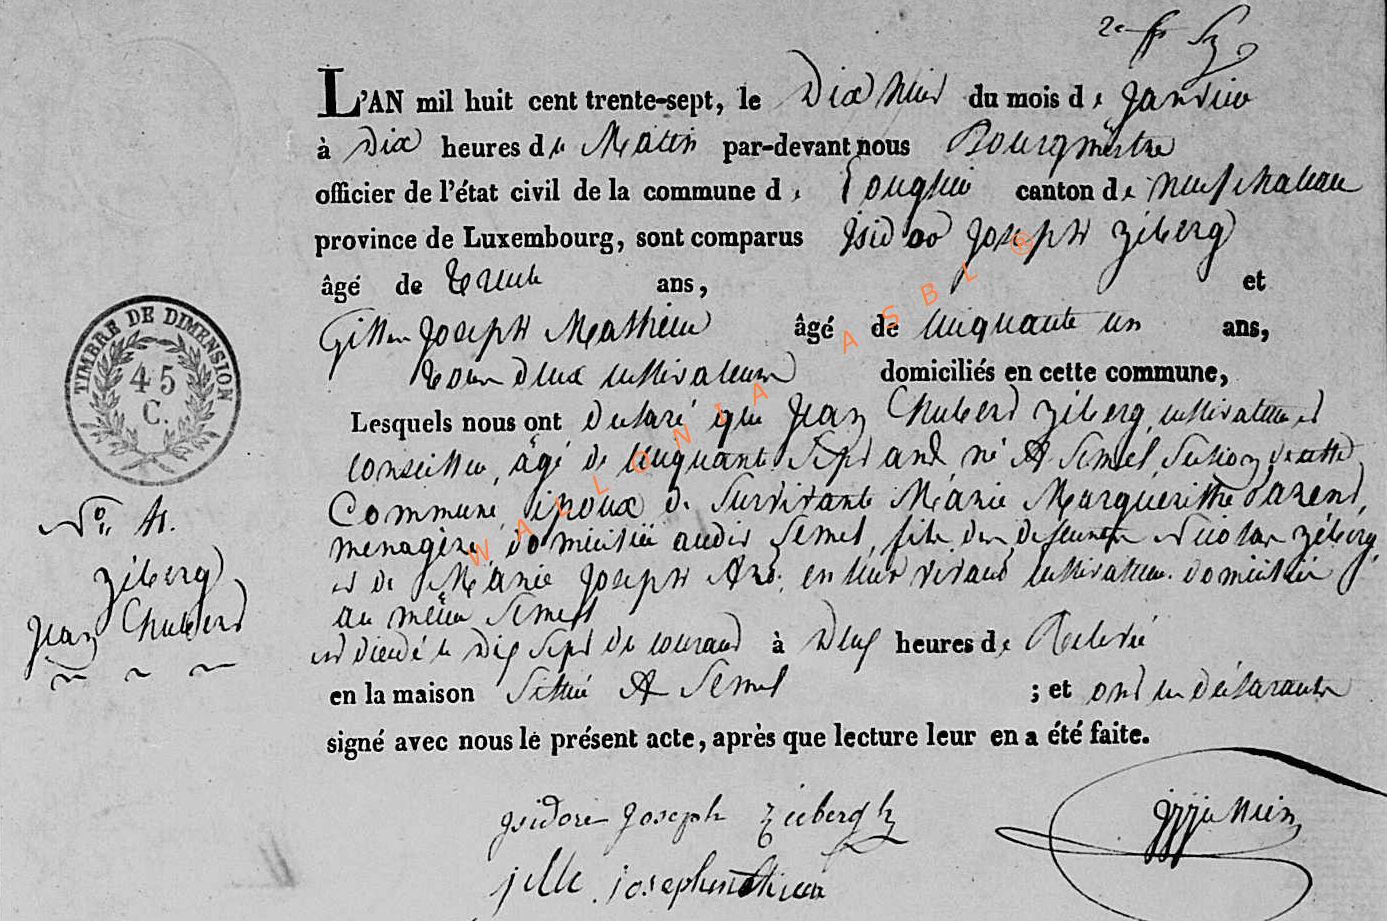 L'AN mil huit cent trente-sept, le Dix Huit du mois de Janvier
à Dix heures du Matin par-devant nous Bourgmestre
officier de l'état civil de la commune de Longlier canton de Neufchateau
province de Luxembourg, sont comparus Isidor Joseph Ziberg
âgé de trente ans, et
Gille Joseph Mathieu âgé de cinquante un ans,
tous deux cultivateurs domiciliés en cette commune,
Lesquels nous ont declaré que Jean Hubert Ziberg, cultivateur et
conseiller, âgé de cinquante Sept ans, né A Semel, Section de cette
Commune époux de Survivante Marie Marguerithe Arend,
menagère, domiciliée audit Semel, fils des defunts Nicolas Ziberg,
et de Marie Joseph en leur vivant cultivateurs domiciliés
au même Semel
est décédé le Dix Sept du courant à Deux heures de Relevée
en la maison Sittuée A Semel ; et ont les déclarants
signé avec nous le présent acte, après que lecture leur en a été faite.
TIMBRE DE DIMENSION
45
C.
No. 4.
Ziberg
Jean Hubert
Isidore Joseph
jille josephmathieu
WALLONIA ASBL ®